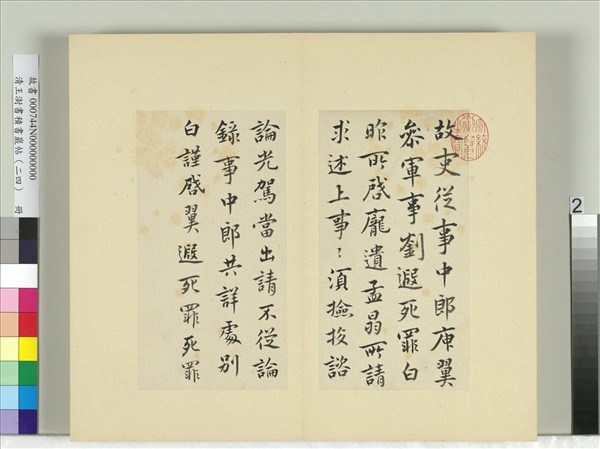 故吏從事中郎庾翼
叅軍事劉遐死罪白
昨所啓龐遺孟昌所請
求述上事〻須撿挍諮
論光駕當出請不從論
錄事中郎共詳處別
白謹啓翼遐死罪死罪
故書 000744N000000000
清王澍書積書巖帖(二四) 冊
2